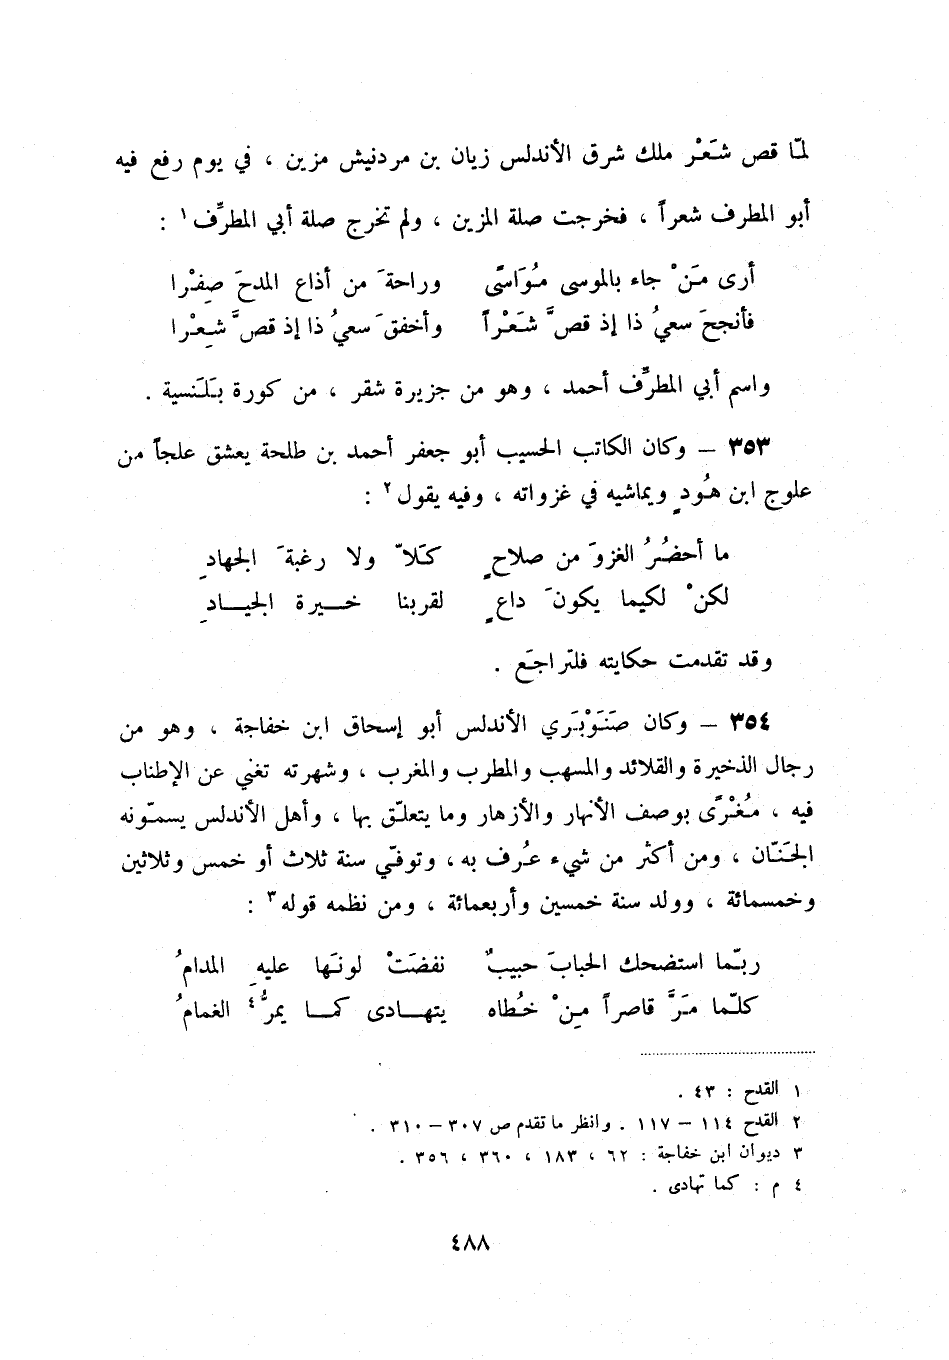 لمّا قص شَعْر ملك شرق الأندلس زيان بن مردنيش مزين ، في يوم رفع فيه
أبو المطرف شعراً ، فخرجت صلة المزين ، ولم تخرج صلة أبي المطرِّف ١ :
أرى مَنْ جاء بالموسى مُوَاسًى وراحةَ من أذاع المدحَ صِفْرا
فأنجحَ سعيُ ذا إذ قصَّ شَعْراً وأخفقَ سعيُ ذا إذ قصَّ شِعْرا
واسم أبي المطرِّف أحمد ، وهو من جزيرة شقر ، من كورة بَلَنسية .
٣٥٣ – وكان الكاتب الحسيب أبو جعفر أحمد بن طلحة يعشق علجاً من
علوج ابن هُودٍ ويماشيه في غزواته ، وفيه يقول ٢ :
ما أحضُرُ الغزوَ من صلاحٍ كَلاّ ولا رغبةَ الجهادِ
لكنْ لكيما يكونَ داعٍ لقربنا خيرة الجيادِ
وقد تقدمت حكايته فلتراجَع .
٣٥٤ – وكان صَنَوْبَري الأندلس أبو إسحاق ابن خفاجة ، وهو من
رجال الذخيرة والقلائد والمسهب والمطرب والمغرب ، وشهرته تغني عن الإطناب
فيه ، مُغْرًى بوصف الأنهار والأزهار وما يتعلّق بها ، وأهل الأندلس يسمّونه
الجَنّان ، ومن أكثر من شيء عُرف به ، وتوفّي سنة ثلاث أو خمس وثلاثين
وخمسمائة ، وولد سنة خمسين وأربعمائة ، ومن نظمه قوله ٣ :
ربّما استضحك الحبابَ حبيبٌ نفضَتْ لونَها عليهِ المدامُ
كلّما مَرَّ قاصراً مِنْ خُطاه يتهادى كما يمرُّ ٤ الغمامُ
١ القدح : ٤٣ .
٢ القدح ١١٤ – ١١٧ . وانظر ما تقدم ص ٣٠٧ – ٣١٠ .
٣ ديوان ابن خفاجة : ٦٢ ، ١٨٣ ، ٣٦٠ ، ٣٥٦ .
٤ م : كما تهادى .
٤٨٨